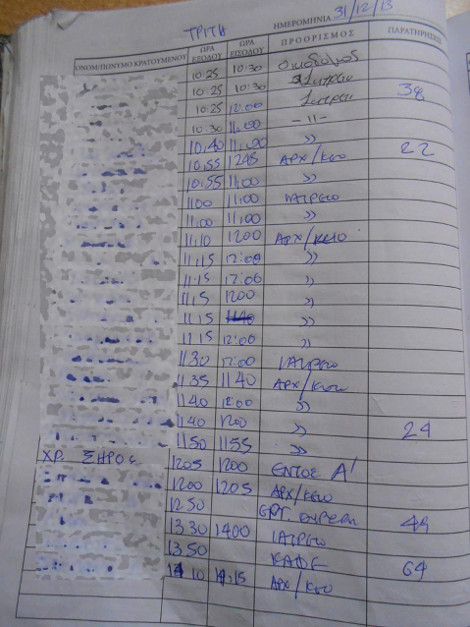 ΤΡΙΤΗ ΗΜΕΡΟΜΗΝΙΑ 31/12/13
ΟΝΟΜΑΤΕΠΩΝΥΜΟ ΚΡΑΤΟΥΜΕΝΟΥ ΩΡΑ ΕΞΟΔΟΥ ΩΡΑ ΕΙΣΟΔΟΥ ΠΡΟΟΡΙΣΜΟΣ ΠΑΡΑΤΗΡΗΣΕΙΣ
10:25 10:30
10:25 10:30 Ιατρειο 38
10:25 12:00 Ιατρειο
10:30 11:00 -11-
10:40 11:00 »
10:55 1245 ΑΡΧ/ΚΕΙΟ 22
10:55 11:00 »
1100 11:00 ΙΑΤΡΕΙΟ
11:00 11:00 »
11:10 1200 ΑΡΧ/ΚΕΙΟ
11:15 12:00 »
11:15 12:00 »
11:15 1200 »
11:15 »
11:15 12:00 »
11:30 12:00 ΙΑΤΡΕΙΟ
11:35 11:40 ΑΡΧ/ΚΕΙΟ
11:40 12:00 »
11:40 1200 » 24
11:50 1155 »
ΧΡ. ΣΗΡΟΣ 1205 1200 ΕΝΤΟΣ Α'
1200 1205 ΑΡΧ/ΚΕΙΟ
12:50
13:30 1400 ΙΑΤΡΕΙΟ
13:50 ΚΑΦΕ 64
14:10 14:15 ΑΡΧ/ΚΕΙΟ